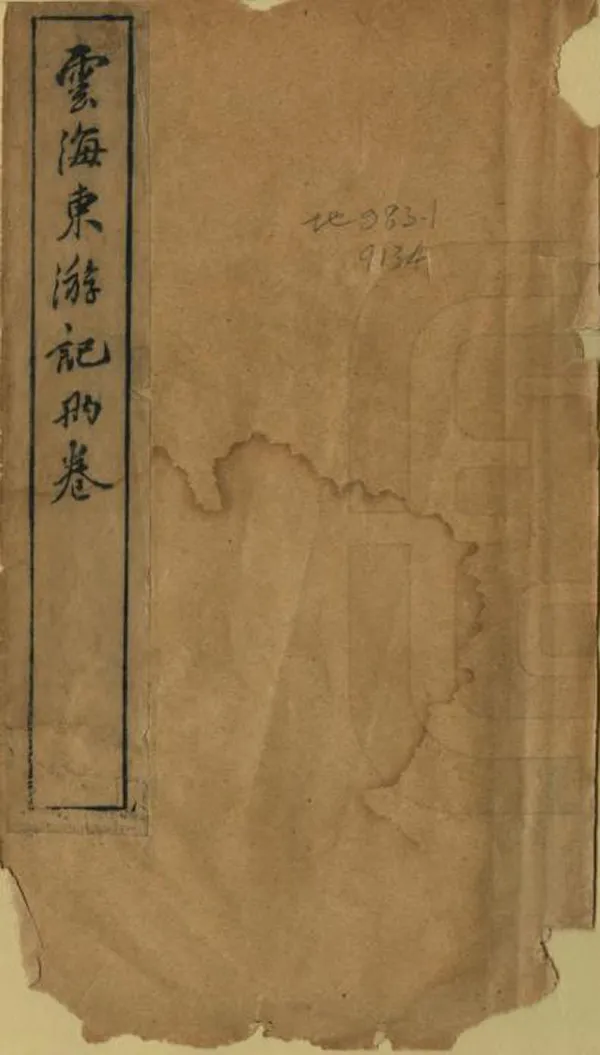 雲海東游記卷
地983-1
9134